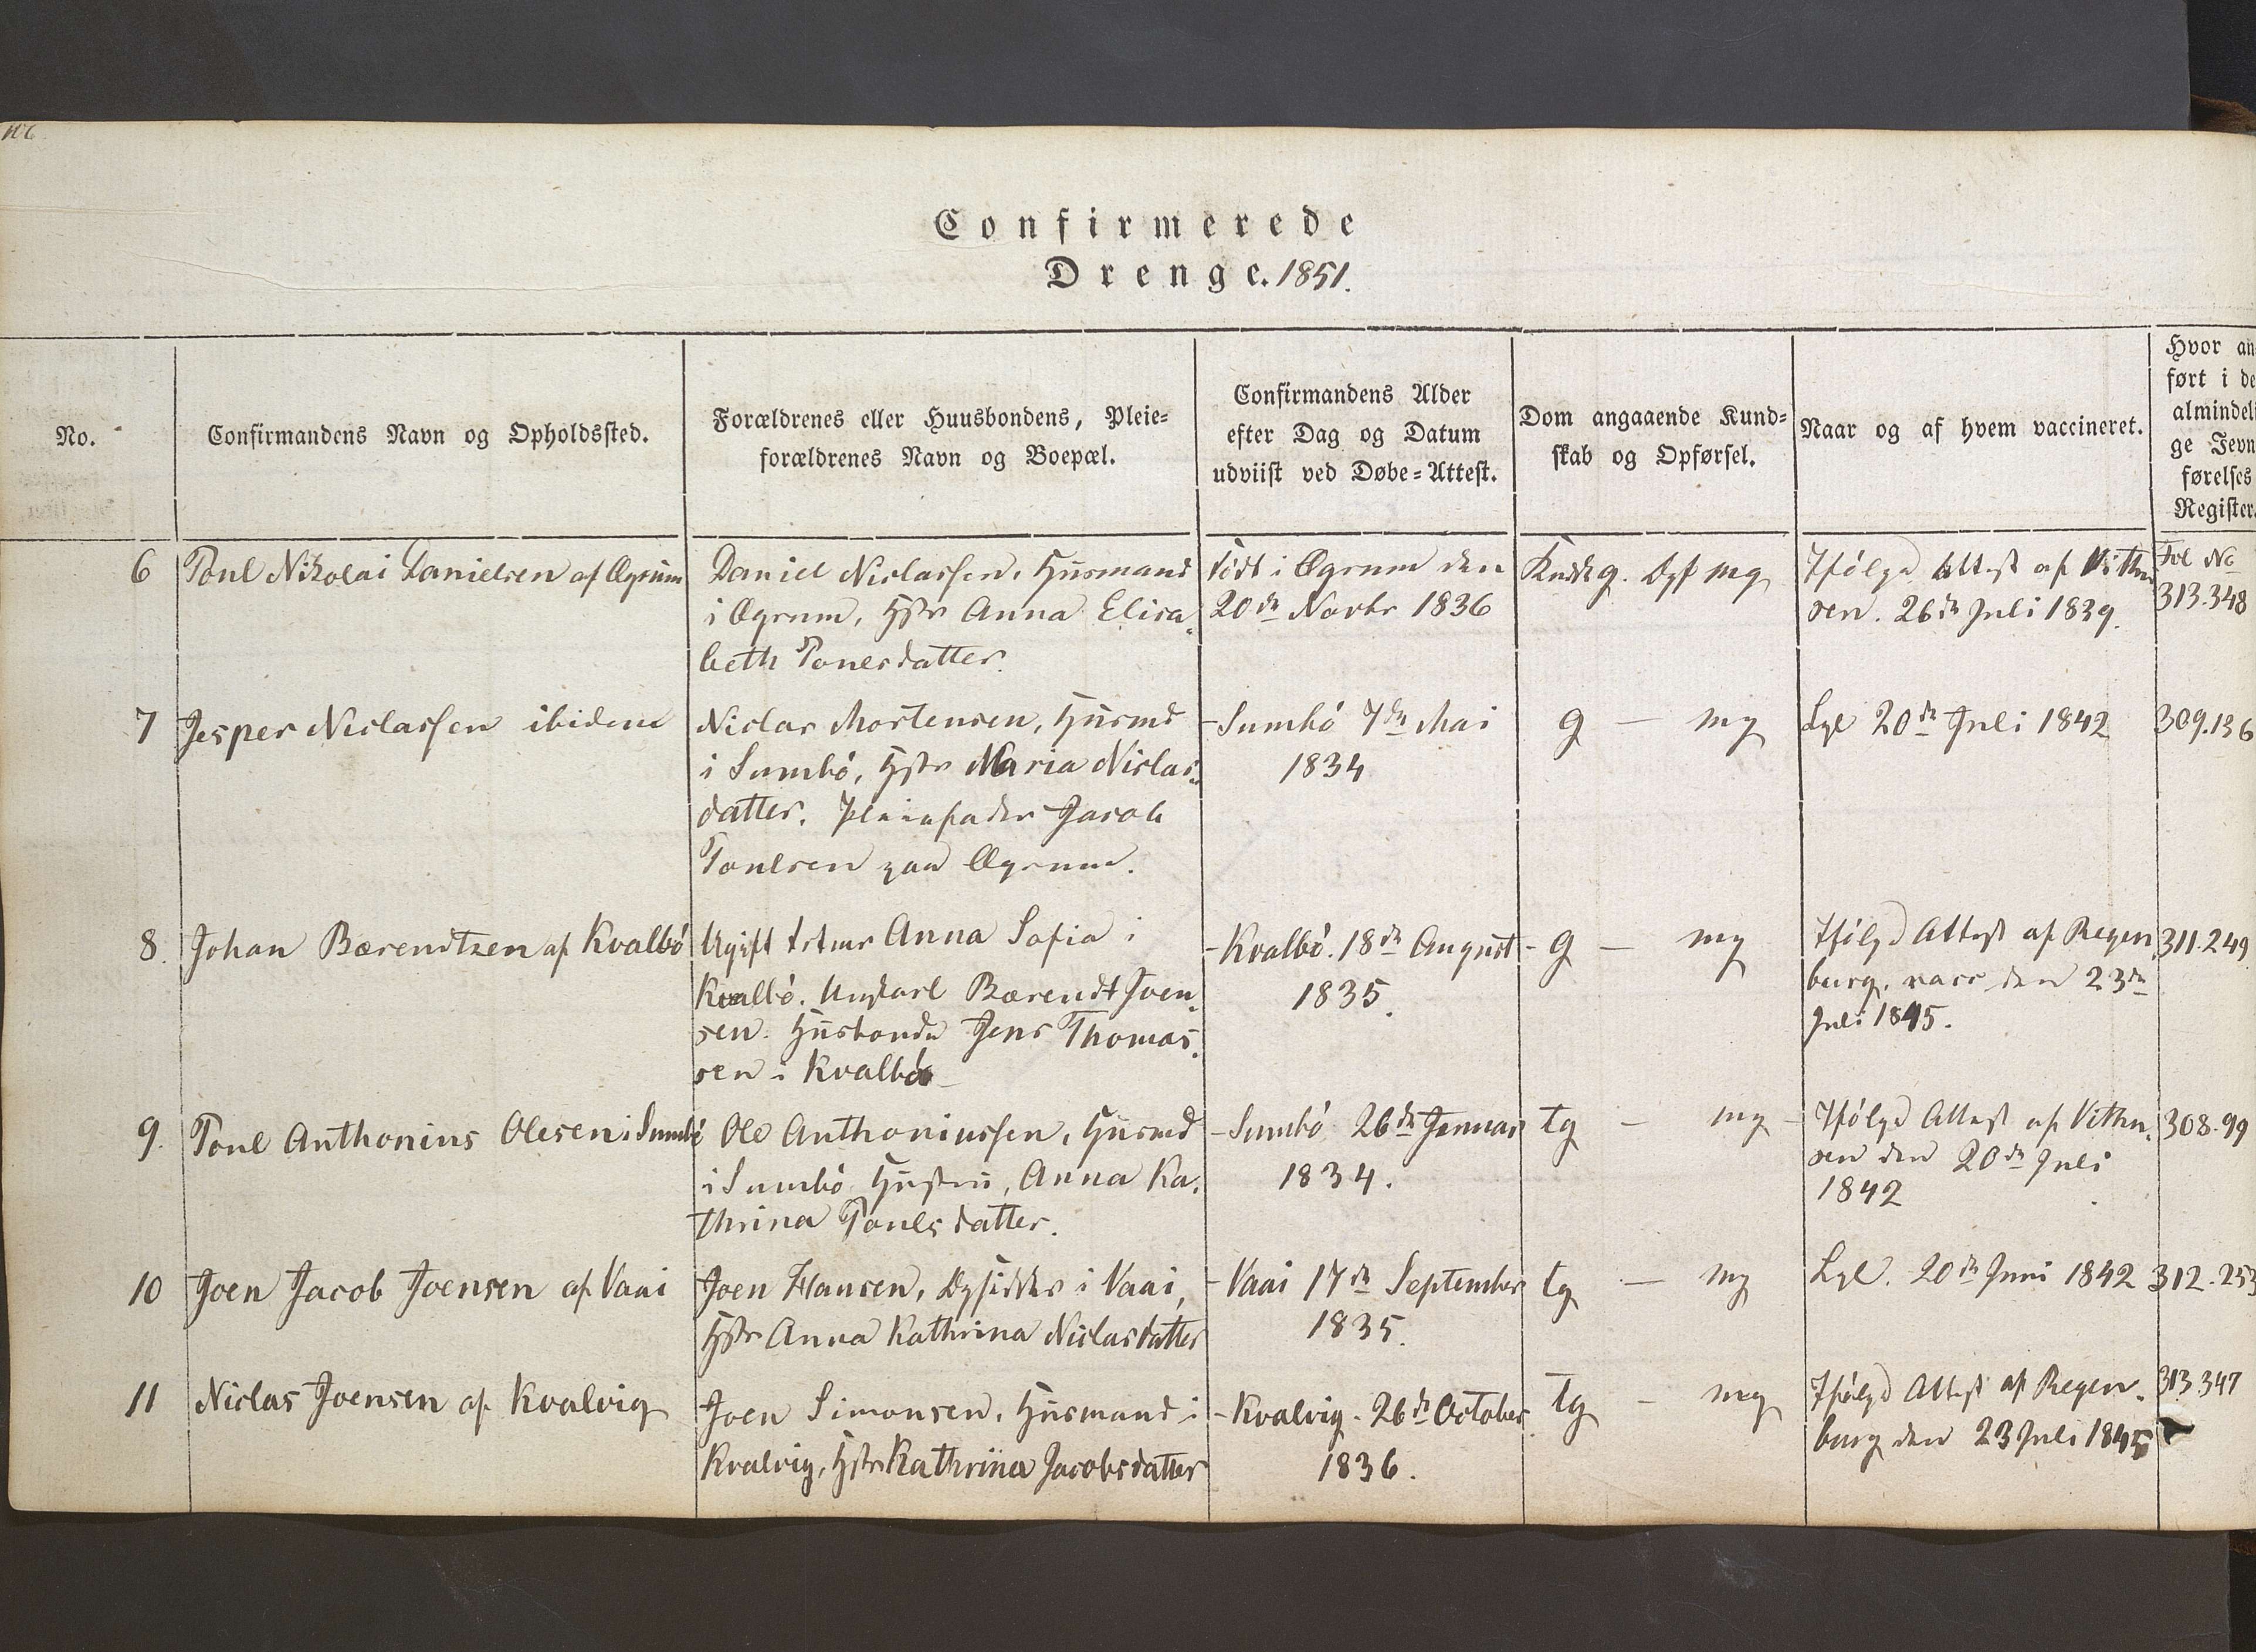 Confirmerede
Drenge. 1851.
No.
Confirmandens Navn og Opholdssted.
Forældrenes eller Huusbondens, Pleie-
forældrenes Navn og Boepæl.
Confirmandens Alder
efter Dag og Datum
udviist ved Døbe-Attest.
Dom angaaende Kund-
skab og Opførsel.
Naar og af hvem vaccineret.
Hvor an
ført i de
almindeli
ge Jevn
førelses
Register.
6
Poul Nikolai Danielsen af Øgrum
Daniel Niclassen, Husmand
i Øgrum, Hstr Anna Elisa-
beth Poulsdatter.
Født i Øgrum den
20de Novbr 1836
Kndsk g. Opf mg
Ifølge Attest af Vithu
sen. 26de Juli 1839.
Fol No
313.348
7
Jesper Niclassen ibidem
Niclas Mortensen, Husmd
i Sumbö, Hstr Maria Niclas-
datter. Pleiefader Jacob
Poulsen paa Øgrum.
- Sumbö 7de Mai
1834
g — mg
Lgl 20de Juli 1842
309.136
8.
Johan Bærendtzen af Kvalbö
Ugift Anna Sofia i
Kvalbö. Ungkarl Bærendt Joen-
sen. Husbonde Jens Thomas-
sen i Kvalbö
- Kvalbö. 18de August
1835.
- g — mg
Ifølge Attest af Regen-
burg, vacc den 23de
Juli 1845.
311.249
9.
Poul Anthonius Olesen i Sumbö
Ole Anthoniussen, Husmd
i Sumbö Hustru, Anna Ka-
thrina Poulsdatter.
- Sumbö 26de Januar
1834.
tg — mg -
Ifølge Attest af Vithu-
sen den 20de Juli
1842
308.99
10
Joen Jacob Joensen af Vaai
Joen Hansen, Opsidder i Vaai,
Hstr Anna Kathrina Niclasdatter
- Vaai 17de September
1835.
tg — mg
Lgl. 20de Juni 1842
312.253
11
Niclas Joensen af Kvalvig
Joen Simonsen, Husmand i
Kvalvig, Hstr Kathrina Jacobsdatter
- Kvalvig - 26de October
1836.
tg — mg
Ifølge Attest af Regen-
burg den 23 Juli 1845
313.347